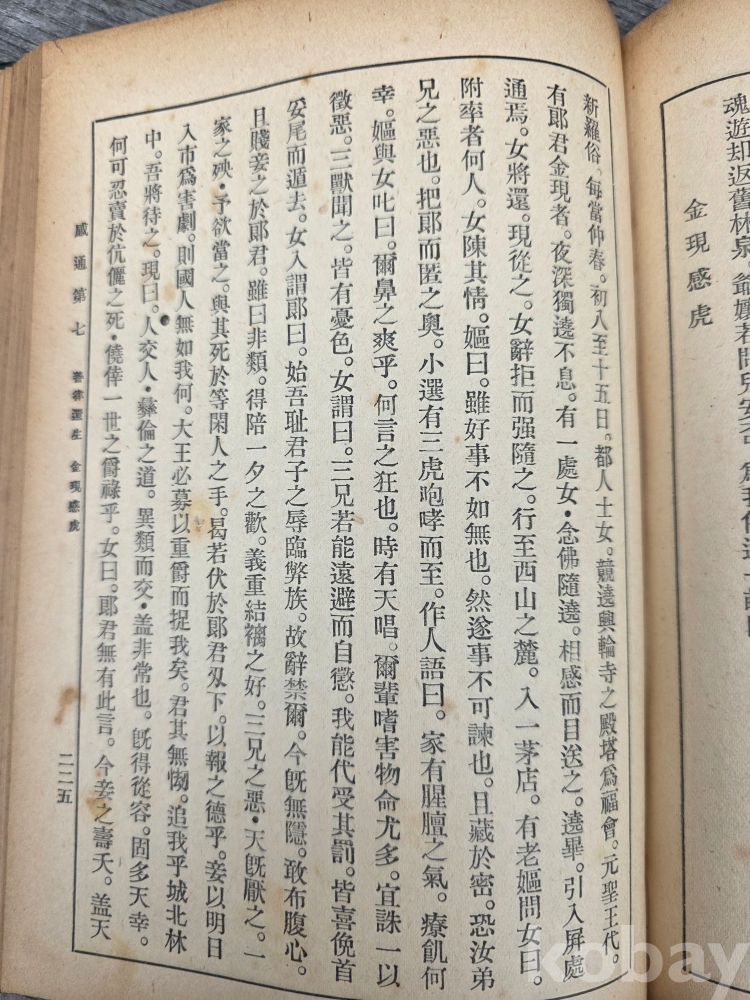 魂遊却返舊林泉。爺孃若問兒安
金現感虎
新羅俗。每當仲春。初八至十五日。都人士女。競遶興輪寺之殿塔爲福會。元聖王代。
有郎君金現者。夜深獨遶不息。有一處女・念佛隨遶。相感而目送之。遶畢。引入屏處
通焉。女將還。現從之。女辭拒而强隨之。行至西山之麓。入一茅店。有老嫗問女曰。
附率者何人。女陳其情。嫗曰。雖好事不如無也。然遂事不可諫也。且藏於密。恐汝弟
兄之惡也。把郎而匿之奥。小選有三虎咆哮而至。作人語曰。家有腥膻之氣。療飢何
幸。嫗與女叱曰。爾鼻之爽乎。何言之狂也。時有天唱。爾輩嗜害物命尤多。宜誅一以
徵惡。三獸聞之。皆有憂色。女謂曰。三兄若能遠避而自懲。我能代受其罰。皆喜俛首
妥尾而遁去。女入謂郎曰。始吾耻君子之辱臨弊族。故辭禁爾。今旣無隱。敢布腹心。
且賤妾之於郎君。雖曰非類。得陪一夕之歡。義重結褵之好。三兄之惡・天旣厭之。一
家之殃・予欲當之。與其死於等閑人之手。曷若伏於郎君刄下。以報之德乎。妾以明日
入市爲害劇。則國人無如我何。大王必募以重爵而捉我矣。君其無㤼。追我乎城北林
中。吾將待之。現曰。人交人・彝倫之道。異類而交・盖非常也。旣得從容。固多天幸。
何可忍賣於伉儷之死・僥倖一世之爵祿乎。女曰。郎君無有此言。今妾之壽夭。盖天
感通第七 善律還生 金現感虎
二二五
kobay